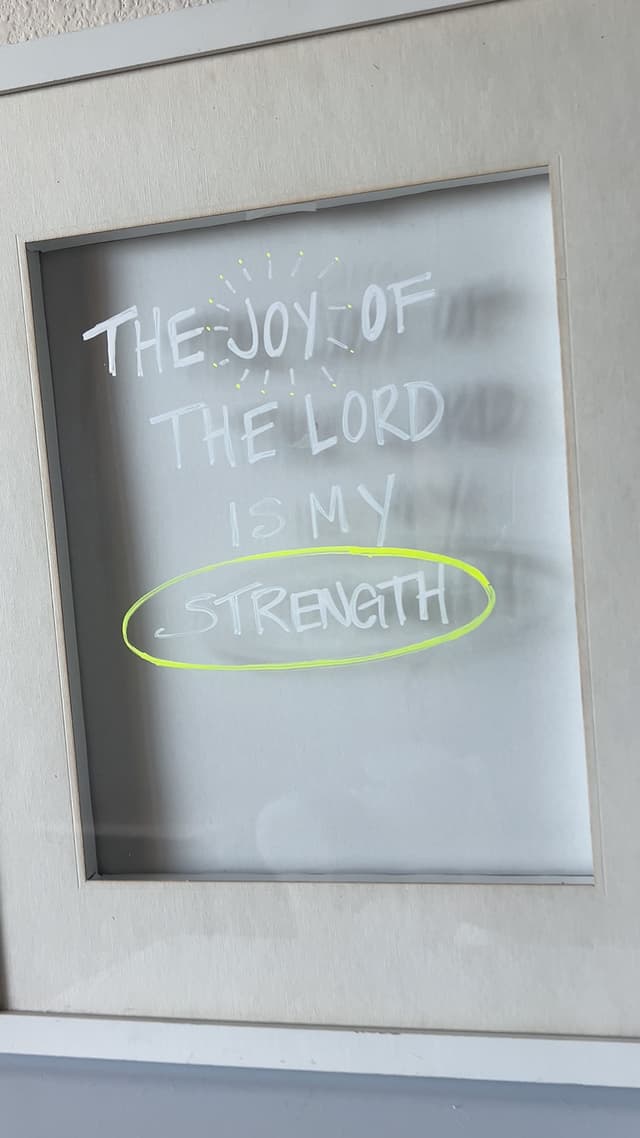 THE JOY OF
THE LORD
IS MY
STRENGTH